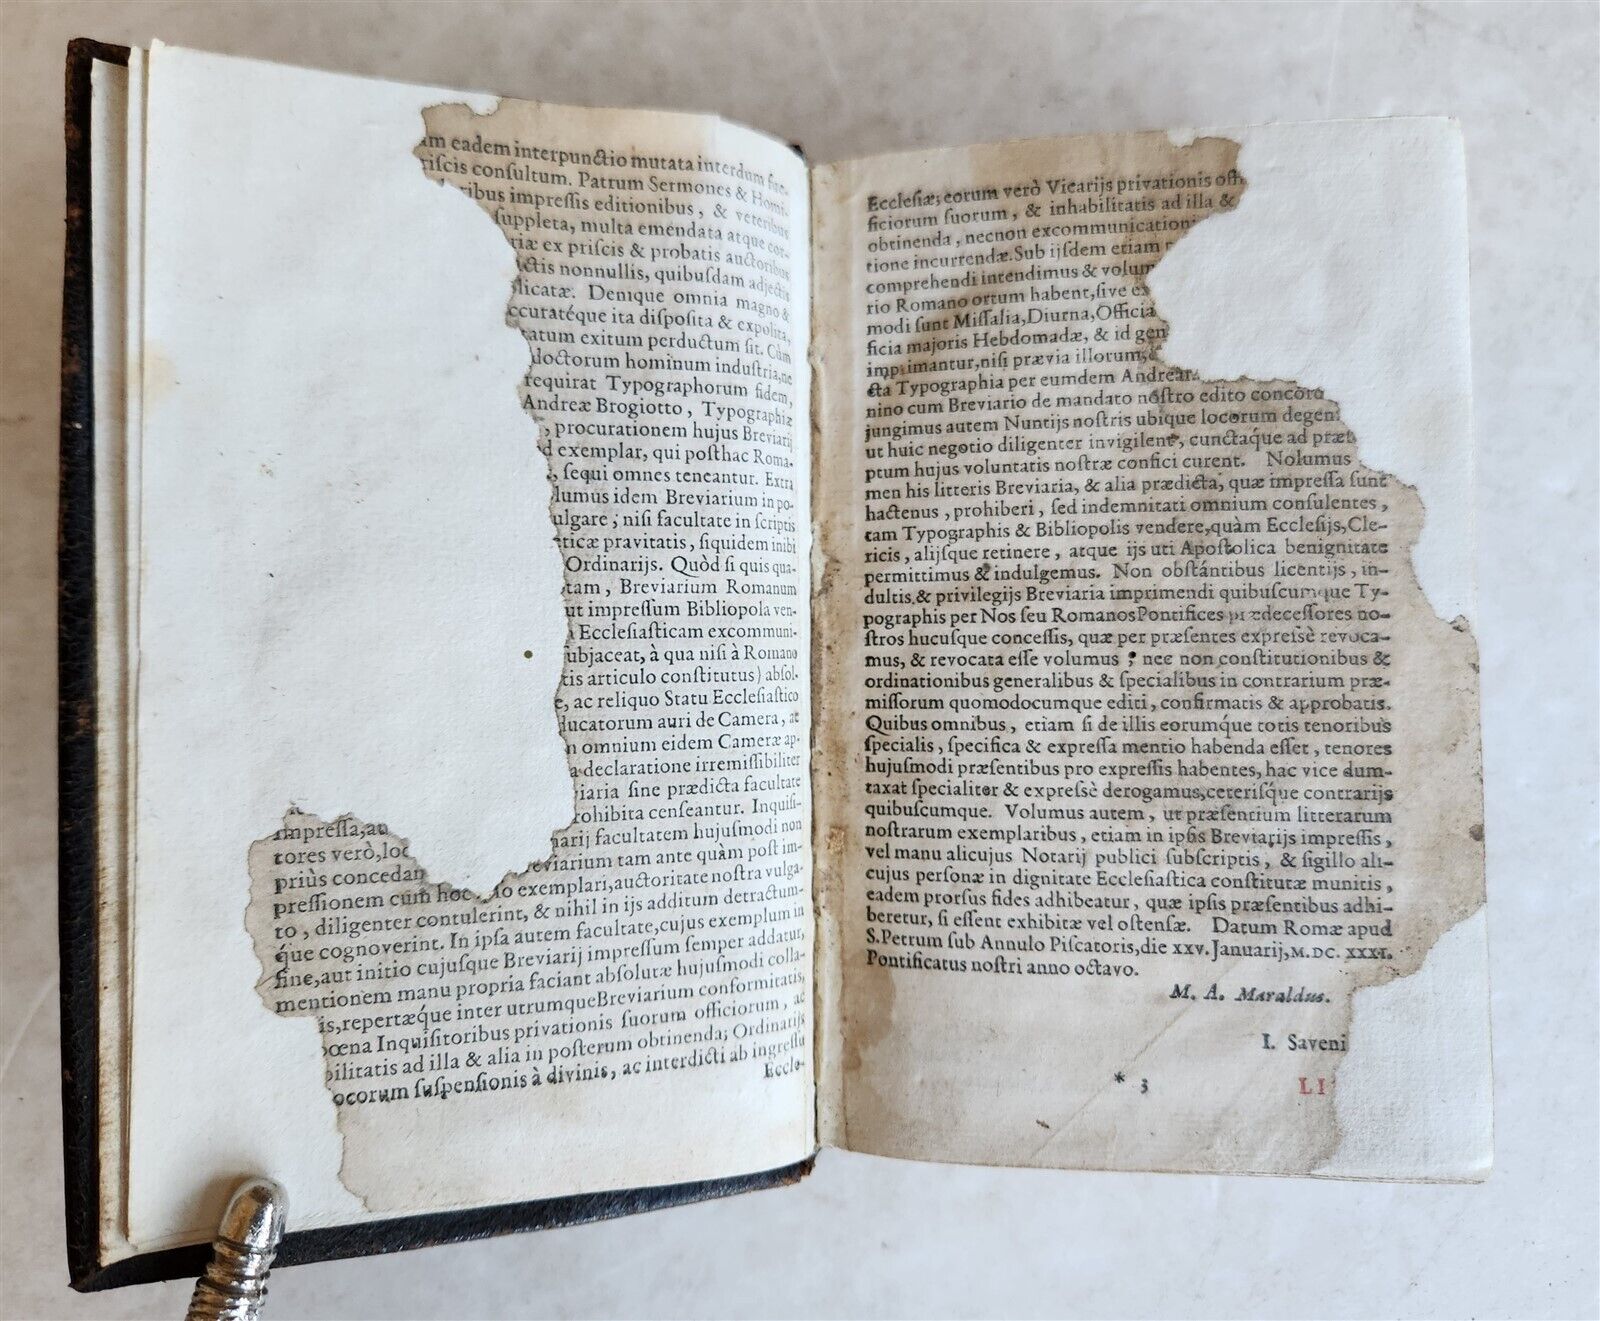 eadem interpunctio mutata interdum
riſcis conſultum. Patrum Sermones & Homi-
oribus impreſſis editionibus, & veteribus
ſuppleta, multa emendata atque cor-
tiæ ex priſcis & probatis auctoribus
ictis nonnullis, quibuſdam adjectis
licatæ. Denique omnia magno &
ccuratéque ita diſpoſita & expolita,
tatum exitum perductum ſit. Cùm
doctorum hominum induſtria, ne
requirat Typographorum fidem,
Andreæ Brogiotto, Typographiæ
, procurationem hujus Breviarij
d exemplar, qui poſthac Roma-
, ſequi omnes teneantur. Extra
lumus idem Breviarium in po-
ulgare, niſi facultate in ſcriptis
ticæ pravitatis, ſiquidem inibi
Ordinarijs. Quòd ſi quis qua-
tam, Breviarium Romanum
ut impreſſum Bibliopola ven-
Eccleſiaſticam excommuni-
ſubjaceat, à qua niſi à Romano
tis articulo conſtitutus) abſol-
e, ac reliquo Statu Eccleſiaſtico
ducatorum auri de Camera, ac
n omnium eidem Cameræ ap-
a declaratione irremiſſibiliter
iaria ſine prædicta facultate
rohibita cenſeantur. Inquiſi-
impreſſa, au narij facultatem hujuſmodi non
tores verò, loc reviarium tam ante quàm poſt im-
priùs concedan io exemplari, auctoritate noſtra vulga-
preſſionem cum hoc
to, diligenter contulerint, & nihil in ijs additum detractum-
q́ue cognoverint. In ipſa autem facultate, cujus exemplum in
fine, aut initio cujuſque Breviarij impreſſum ſemper addatur,
mentionem manu propria faciant abſolutæ hujuſmodi colla-
is, repertæq́ue inter utrumque Breviarium conformitatis,
pœna Inquiſitoribus privationis ſuorum officiorum, ac
bilitatis ad illa & alia in poſterum obtinenda; Ordinarijs
ocorum ſuſpenſionis à divinis, ac interdicti ab ingreſſu
Eccle-
Eccleſiæ; eorum verò Vicarijs privationis off
ficiorum ſuorum, & inhabilitatis ad illa &
obtinenda, necnon excommunication
tione incurrendæ. Sub ijſdem etiam
comprehendi intendimus & volum
rio Romano ortum habent, ſive ex
modi ſunt Miſſalia, Diurna, Officia
ficia majoris Hebdomadæ, & id gen
imprimantur, niſi prævia illorum,
cta Typographia per eumdem Andream
nino cum Breviario de mandato noſtro edito concord
jungimus autem Nuntijs noſtris ubique locorum degen
ut huic negotio diligenter invigilent, cunctaque ad præ
ptum hujus voluntatis noſtræ confici curent. Nolumus
men his litteris Breviaria, & alia prædicta, quæ impreſſa ſunt
hactenus, prohiberi, ſed indemnitati omnium conſulentes,
tam Typographis & Bibliopolis vendere, quàm Eccleſijs, Cle-
ricis, alijſque retinere, atque ijs uti Apoſtolica benignitate
permittimus & indulgemus. Non obſtántibus licentijs, in-
dultis, & privilegijs Breviaria imprimendi quibuſcumque Ty-
pographis per Nos ſeu Romanos Pontifices prædeceſſores no-
ſtros hucuſque conceſſis, quæ per præſentes expreſsè revoca-
mus, & revocata eſſe volumus; nec non conſtitutionibus &
ordinationibus generalibus & ſpecialibus in contrarium præ-
miſſorum quomodocumque editi, confirmatis & approbatis.
Quibus omnibus, etiam ſi de illis eorumq́ue totis tenoribus
ſpecialis, ſpecifica & expreſſa mentio habenda eſſet, tenores
hujuſmodi præſentibus pro expreſſis habentes, hac vice dum-
taxat ſpecialiter & expreſsè derogamus, ceteriſq́ue contrarijs
quibuſcumque. Volumus autem, ut præſentium litterarum
noſtrarum exemplaribus, etiam in ipſis Breviarijs impreſſis,
vel manu alicujus Notarij publici ſubſcriptis, & ſigillo ali-
cujus perſonæ in dignitate Eccleſiaſtica conſtitutæ munitis,
eadem prorſus fides adhibeatur, quæ ipſis præſentibus adhi-
beretur, ſi eſſent exhibitæ vel oſtenſæ. Datum Romæ apud
S. Petrum ſub Annulo Piſcatoris, die XXV. Januarij, M. DC. XXXI.
Pontificatus noſtri anno octavo.
M. A. Maraldus.
I. Saveni
* 3 LI